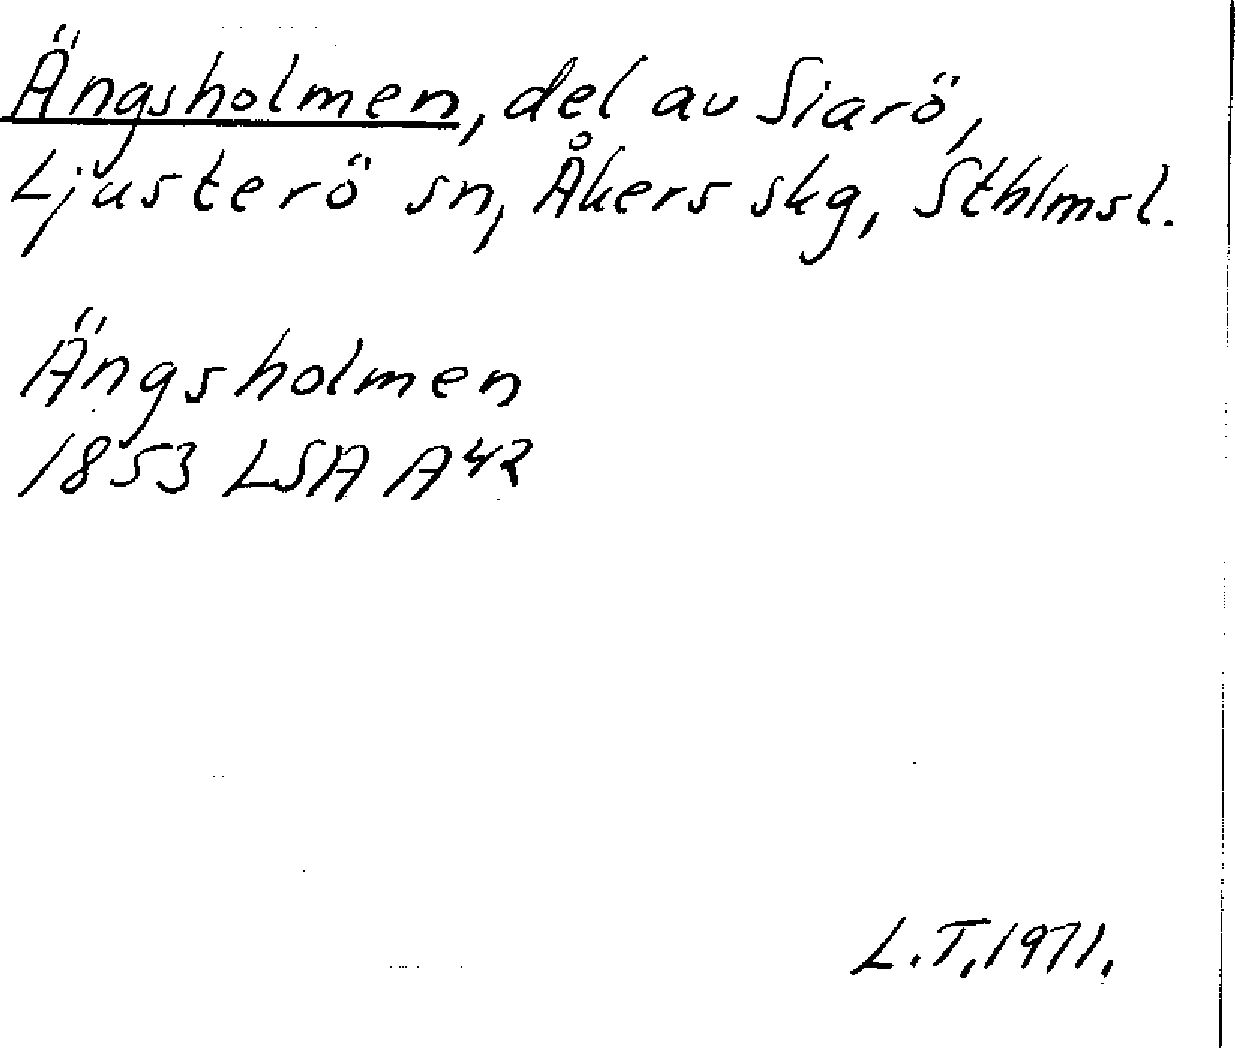 Ängsholmen, del av Siarö,
Ljusterö sn, Åkers skg, Sthlmsl.
Ängsholmen
1853 LSA A42
L.T, 1971.